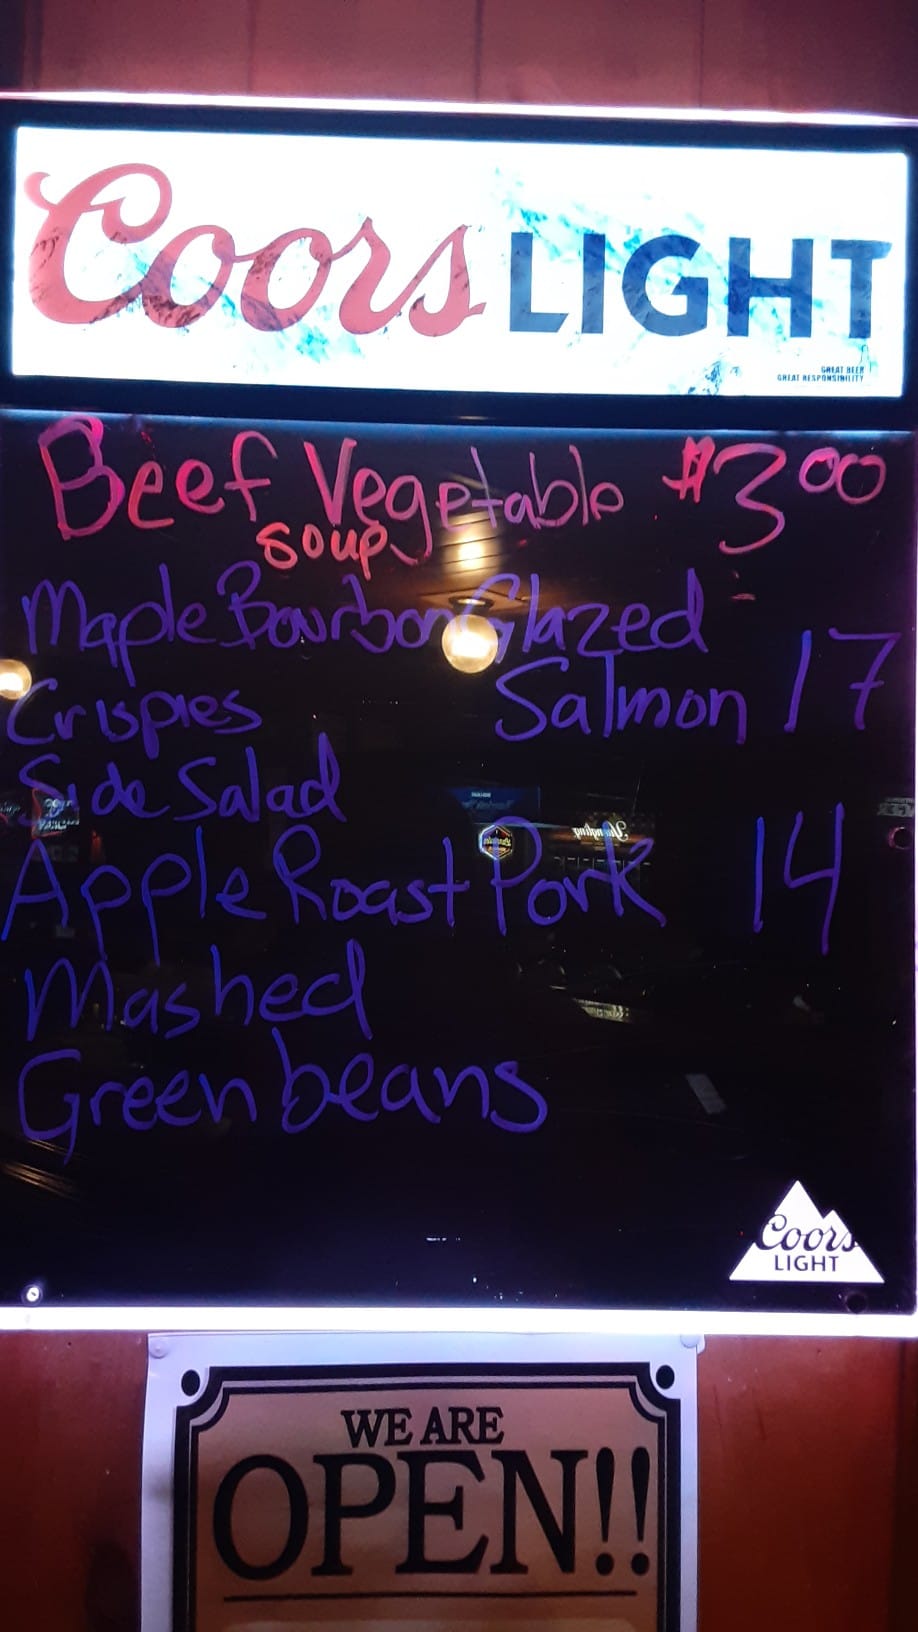 Coors LIGHT
GREAT BEER
GREAT RESPONSIBILITY
Beef Vegetable $3.00
soup
Maple Bourbon Glazed
Crispies Salmon 17
Side Salad
Apple Roast Pork 14
Mashed
Green beans
Coors
LIGHT
WE ARE
OPEN!!